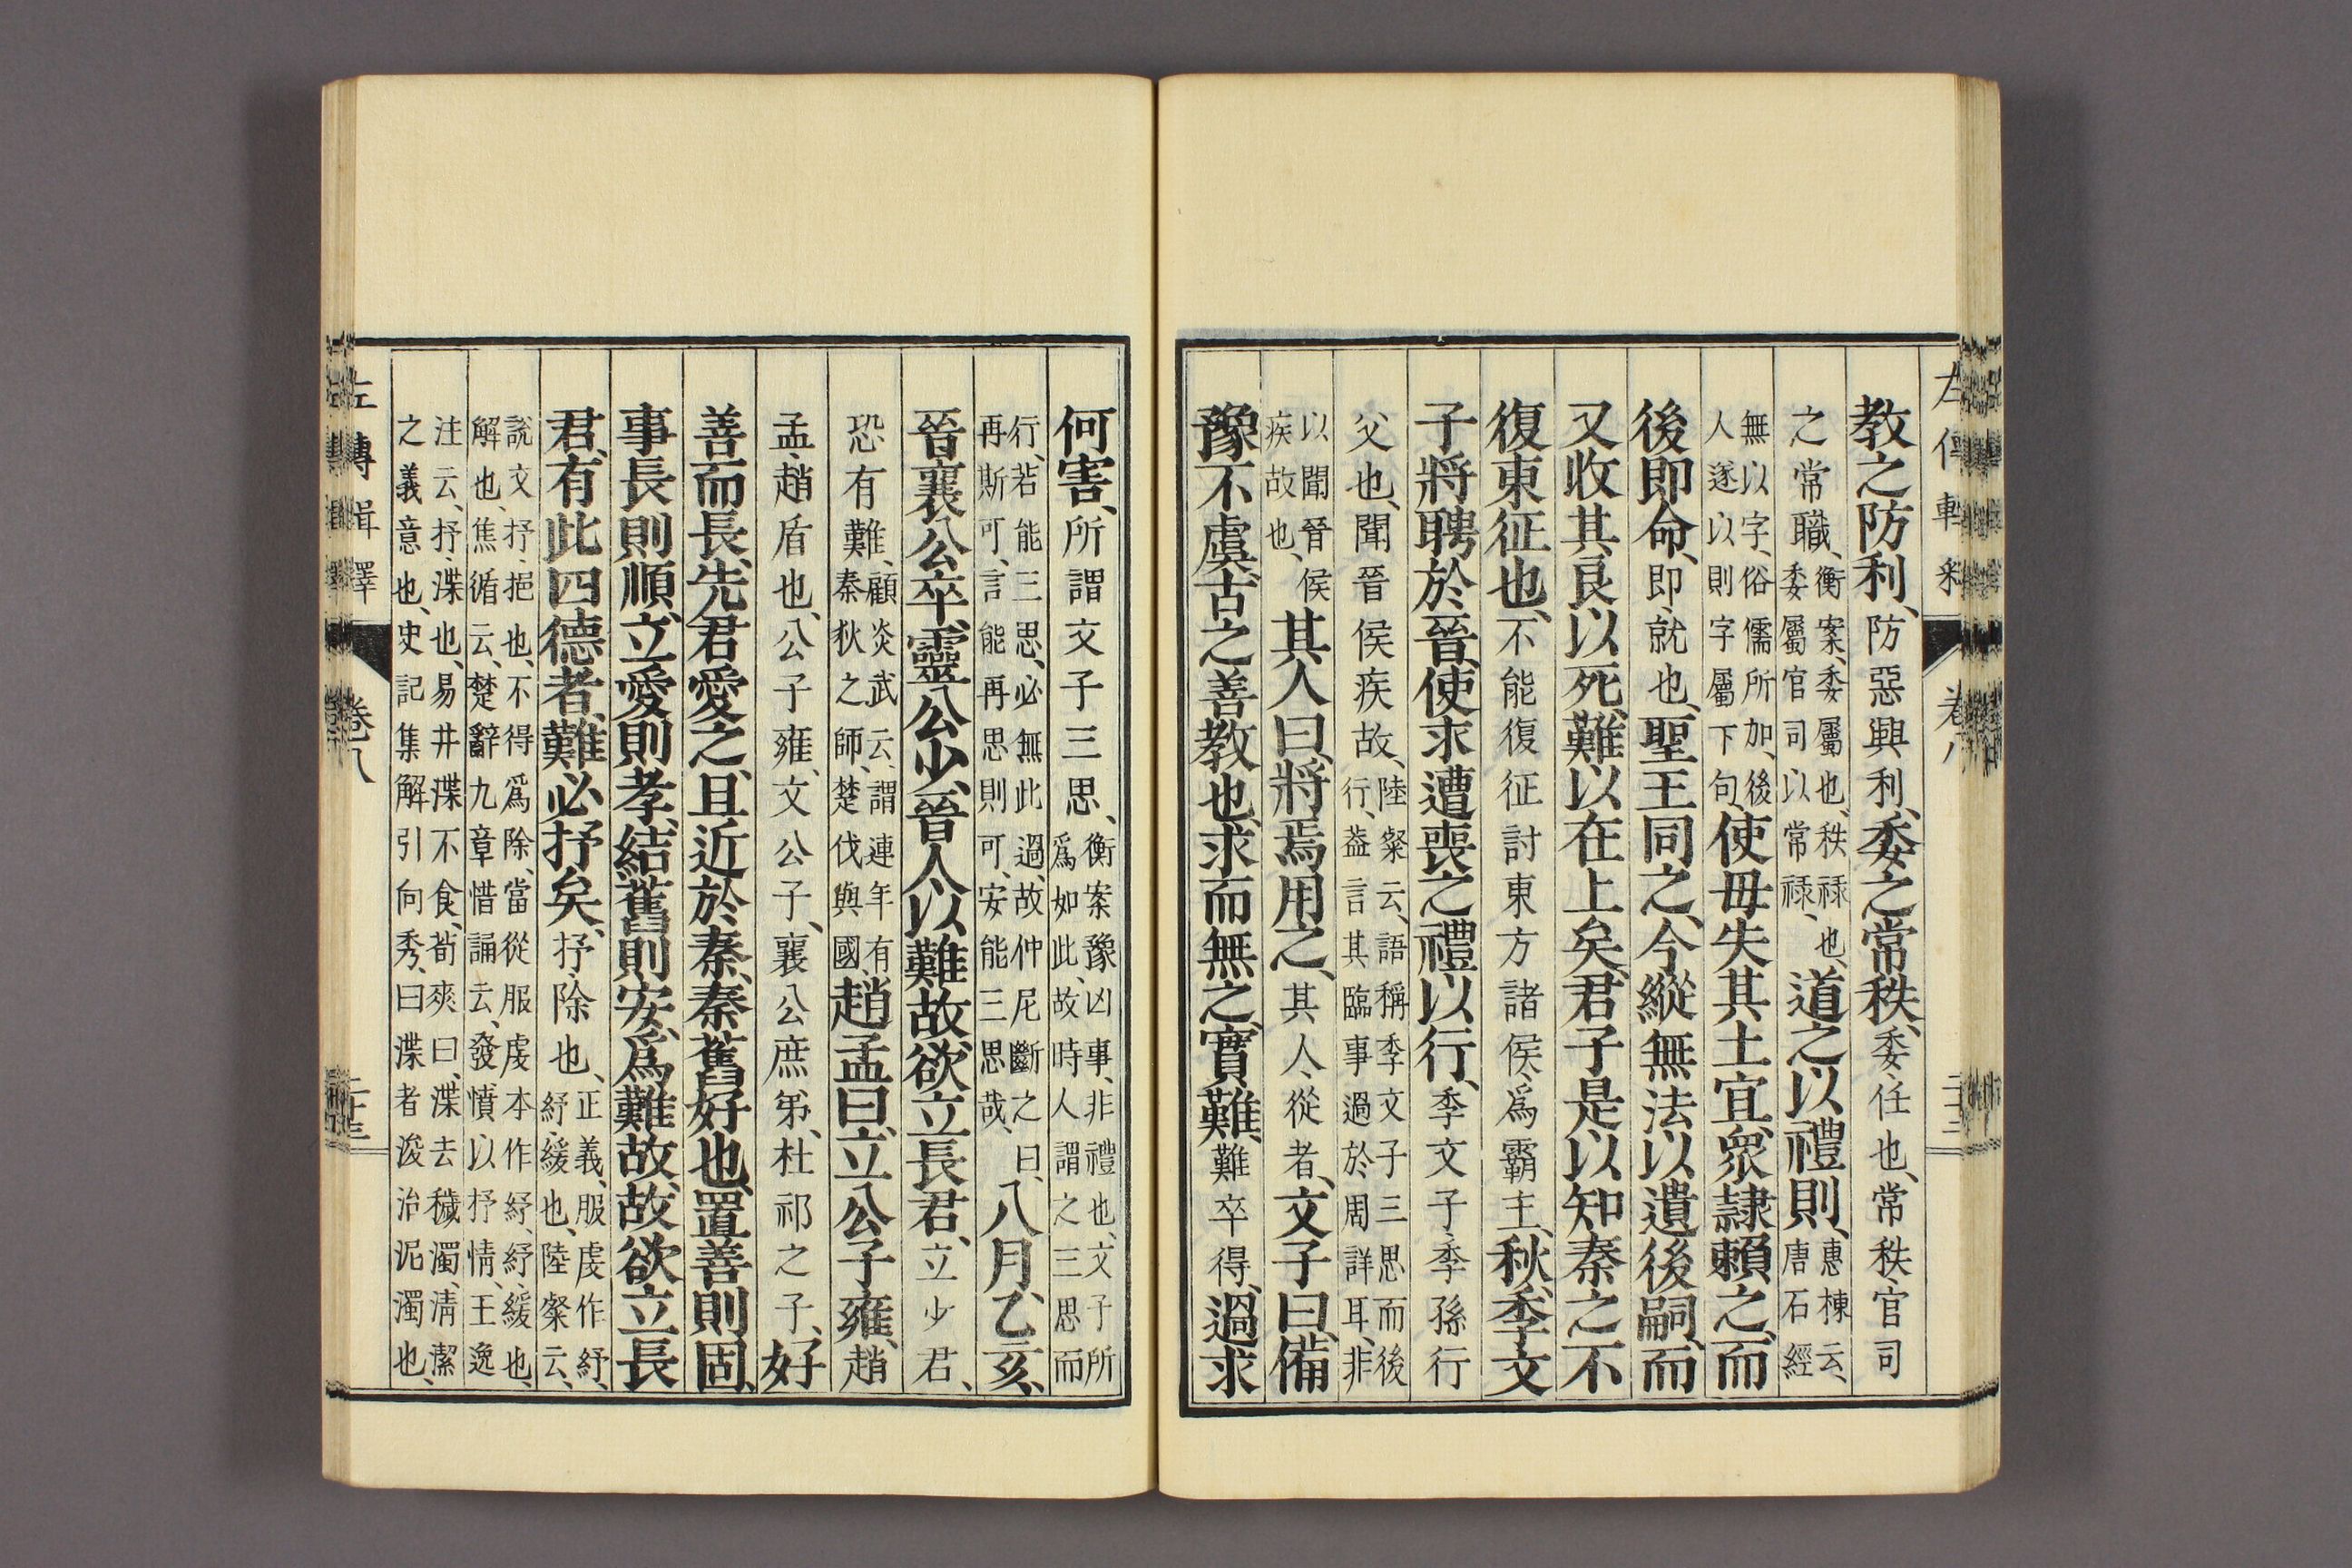 教之防利、防惡興利、委之常秩、委、任也、常秩、官司
之常職、衡案、委屬也、秩祿也、委屬官司以常祿、道之以禮則、惠棟云、唐石經
無以字、俗儒所加、後人遂以則字屬下句、使毋失其土宜、衆隷賴之、而
後即命、即、就也、聖王同之、今縱無法以遺後嗣、而
又收其良以死、難以在上矣、君子是以知秦之不
復東征也、不能復征討東方諸侯、爲霸主、秋、季文
子將聘於晉、使求遭喪之禮以行、季文子、季孫行
父也、聞晉侯疾故、陸粲云、語稱季文子三思而後行、葢言其臨事過於周詳耳、非
以聞晉侯疾故也、其人曰、將焉用之、其人、從者、文子曰、備
豫不虞、古之善教也、求而無之、實難、難卒得、過求
何害、所謂文子三思、衡案豫凶事、非禮也、文子所爲如此、故時人謂之三思而
行、若能三思、必無此過、故仲尼斷之曰、再斯可、言能再思則可、安能三思哉、八月、乙亥、
晉襄公卒、靈公少、晉人以難故、欲立長君、立少君、
恐有難、顧炎武云、謂連年有秦狄之師、楚伐與國、趙孟曰、立公子雍、趙
孟、趙盾也、公子雍、文公子、襄公庶弟、杜祁之子、好
善而長、先君愛之、且近於秦、秦舊好也、置善則固、
事長則順、立愛則孝、結舊則安、爲難故、故欲立長
君、有此四德者、難必抒矣、抒、除也、正義、服虔作紓、紓、緩也、陸粲云、
說文、抒、挹也、不得爲除、當從服虔本作紓、紓、緩也、解也、焦循云、楚辭九章惜誦云、發憤以抒情、王逸
注云、抒渫也、易井渫不食、荀爽曰、渫去穢濁、淸潔之義意也、史記集解引向秀、曰渫者浚治泥濁也、
左傳輯釋
卷八